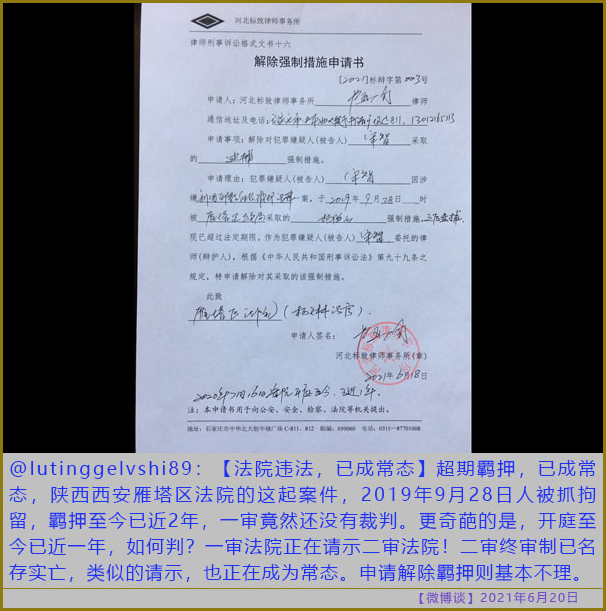 河北标致律师事务所
律师刑事诉讼格式文书十六
解除强制措施申请书
[2021]标辩字第003号
申请人:河北标致律师事务所 律师
通信地址及电话:
申请事项:解除对犯罪嫌疑人(被告人) 宋智 采取
的 逮捕 强制措施。
申请理由:犯罪嫌疑人(被告人) 宋智 因涉
嫌 一案,于 2019 年 9 月 28 日 时
被 采取的 强制措施,
现已超过法定期限。作为犯罪嫌疑人(被告人) 宋智 委托的律
师(辩护人)。根据《中华人民共和国刑事诉讼法》第九十九条之
规定,特申请解除对其采取的该强制措施。
此致
雁塔区法院
申请人签名:
河北标致律师事务所(章)
2021年6月18日
注:本申请书用于向公安、安全、检察、法院等机关提出。
地址:石家庄市中华北大街中储广场C-811、812 邮编:050000 电话:0311-87701008
@lutinggelvshi89:【法院违法,已成常态】超期羁押,已成常
态,陕西西安雁塔区法院的这起案件,2019年9月28日人被抓拘
留,羁押至今已近2年,一审竟然还没有裁判。更奇葩的是,开庭至
今已近一年,如何判?一审法院正在请示二审法院!二审终审制已名
存实亡,类似的请示,也正在成为常态。申请解除羁押则基本不理。
【微博谈】2021年6月20日